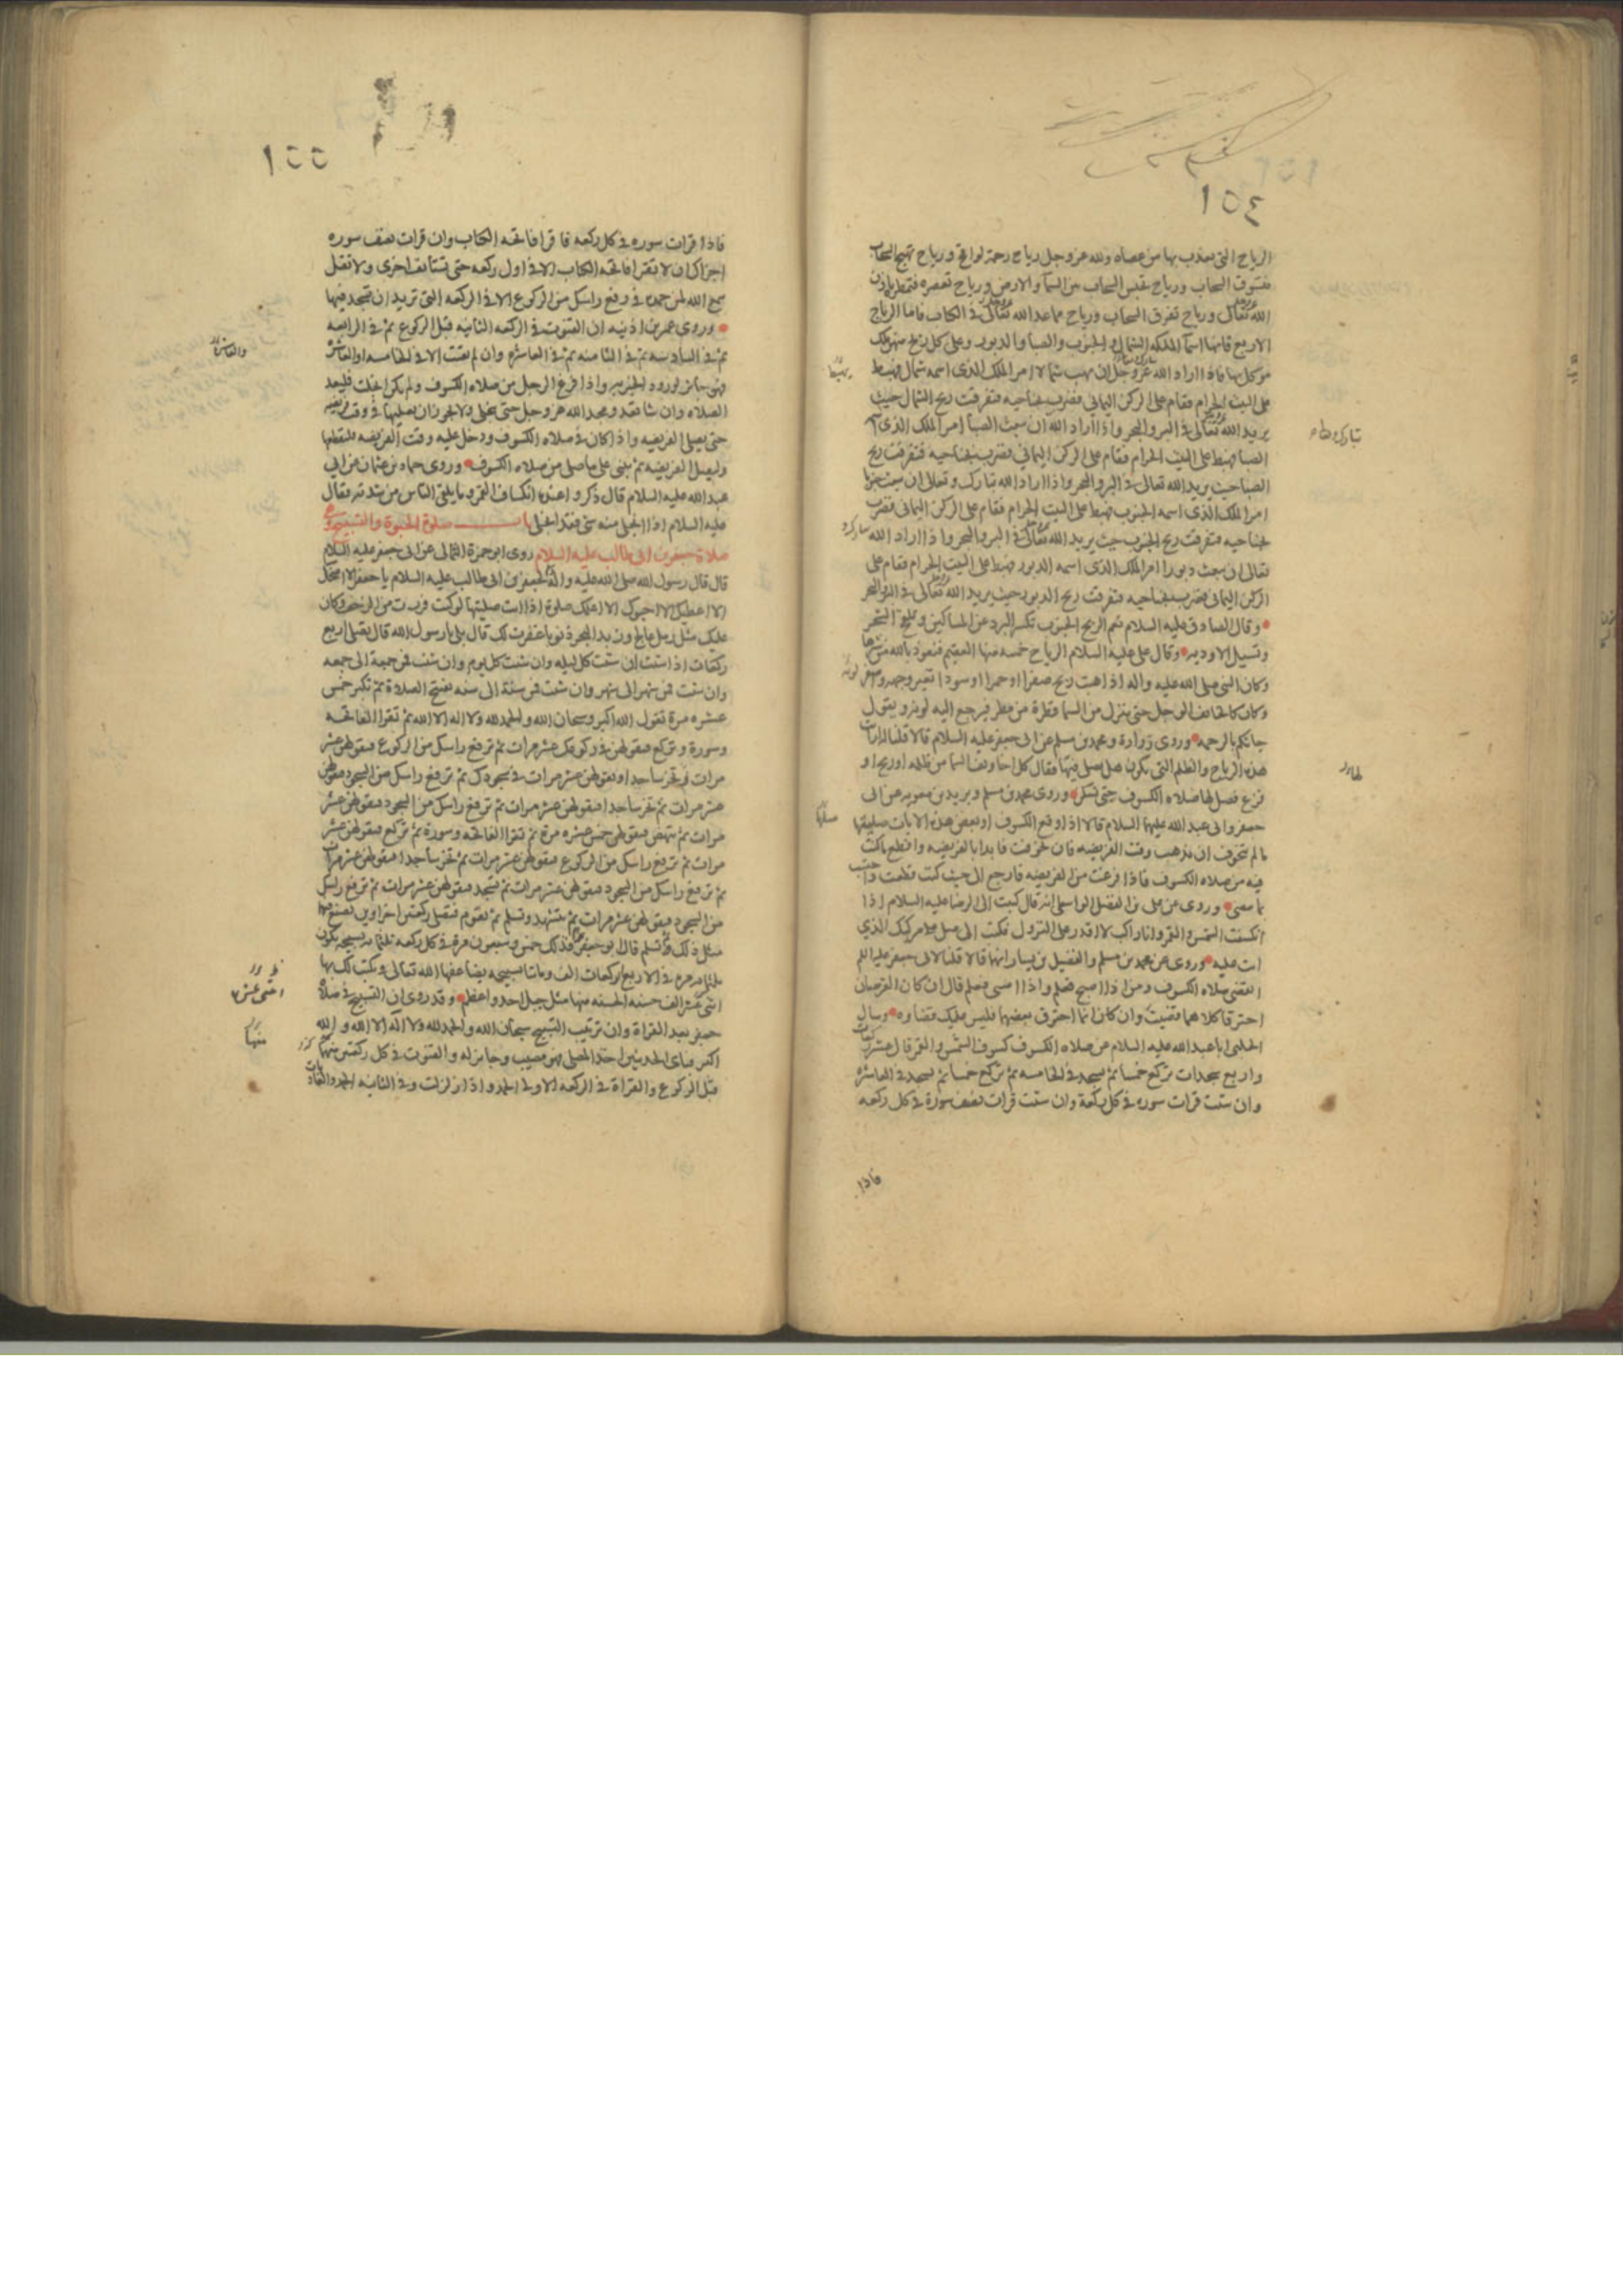 ١٥٤
الرياح التى يعذب بها من عصاه ولله عز وجل رياح رحمة لواقح ورياح تهيج السحاب
فتسوق السحاب ورياح تحبس السحاب بين السما والارض ورياح تعصره فتمطر باذن
الله تعالى ورياح تفرق السحاب ورياح مما عد الله تعالى فى الكتاب فاما الرياح
الاربع فانها اسما الملئكه الشمال والجنوب والصبا والدبور وعلى كل ريح منهن ملك
موكل بها فاذا اراد الله عز وجل ان يهب شمالا امر الملك الذى اسمه شمال فيهبط
يهبط
على البيت الحرام فقام على الركن اليمانى فضرب بجناحيه فتفرقت ريح الشمال حيث
يريد الله تعالى فى البر والبحر واذا اراد الله ان يبعث الصبا امر الملك الذى اسمه
تبارك وتعالى
الصبا فهبط على البيت الحرام فقام على الركن اليمانى فضرب بجناحيه فتفرقت ريح
الصبا حيث يريد الله تعالى فى البر والبحر واذا اراد الله تبارك وتعالى ان يبعث جنوبا
امر الملك الذى اسمه الجنوب فهبط على البيت الحرام فقام على الركن اليمانى فضرب
بجناحيه فتفرقت ريح الجنوب حيث يريد الله تعالى فى البر والبحر واذا اراد الله
تعالى ان يبعث دبورا امر الملك الذى اسمه الدبور فهبط على البيت الحرام فقام على
الركن اليمانى فضرب بجناحيه فتفرقت ريح الدبور حيث يريد الله تعالى فى البر والبحر
وقال الصادق عليه السلام نعم الريح الجنوب تكسر البرد عن المساكين وتلقح الشجر
وتسيل الاوديه وقال على عليه السلام الرياح خمسه منها العقيم فنعوذ بالله من شرها
وكان النبى صلى الله عليه واله اذا هبت ريح صفرا او حمرا او سودا تغير وجهه واصفر لونه
وكان كالخائف الوجل حتى ينزل من السما قطرة من مطر فيرجع اليه لونه ويقول
جاتكم بالرحمه وروى زرارة ومحمد بن مسلم عن ابى جعفر عليه السلام قالا قلنا له ارايت
هذه الرياح والظلم التى تكون هل يصلى فيها فقال كل اخاويف السما من ظلمه او ريح او
فزع فصل لها صلاه الكسوف حتى تسكن وروى محمد بن مسلم وبريد بن معويه عن ابى
جعفر وابى عبد الله عليهما السلام قالا اذا وقع الكسوف او بعض هذه الايات صليتها
ما لم تتخوف ان يذهب وقت الفريضه فان تخوفت فابدا بالفريضه واقطع ما كنت
فيه من صلاه الكسوف فاذا فرغت من الفريضه فارجع الى حيث كنت قطعت واحتسب
بما مضى وروى عن على بن الفضل الواسطى انه قال كتبت الى الرضا عليه السلام اذا
انكسفت الشمس والقمر وانا راكب لا اقدر على النزول فكتب الى صل على مركبك الذى
انت عليه وروى عن محمد بن مسلم والفضيل بن يسار انهما قالا قلنا لابى جعفر عليه السلم
اتقضى صلاه الكسوف ومن اذا اصبح فعلم واذا امسى فعلم قال ان كان القرصان
احترقا كلاهما قضيت وان كان انما احترق بعضهما فليس عليك قضاوه وسال
الحلبى ابا عبد الله عليه السلام عن صلاه الكسوف كسوف الشمس والقمر قال عشر ركعات
واربع سجدات تركع خمسا ثم تسجد فى الخامسه ثم تركع خمسا ثم تسجد فى العاشره
وان شئت قرات سوره فى كل ركعة وان شئت قرات نصف سورة فى كل ركعه
فاذا
١٥٥
فاذا قرات سوره فى كل ركعه فاقرا فاتحه الكتاب وان قرات نصف سوره
اجزاك ان لا تقرا فاتحه الكتاب الا فى اول ركعه حتى تستانف اخرى ولا تقل
سمع الله لمن حمده فى رفع راسك من الركوع الا فى الركعه التى تريد ان تسجد فيها
وروى عمر بن اذينه ان القنوت فى الركعه الثانيه قبل الركوع ثم فى الرابعه
ثم فى السادسه ثم فى الثامنه ثم فى العاشره وان لم تقنت الا فى الخامسه والعاشره
فهو جائز لورود الخبر به واذا فرغ الرجل من صلاه الكسوف ولم يكن انجلت فليعد
الصلاه وان شا قعد ومجد الله عز وجل حتى تنجلى ولا يجوز ان يصليها فى وقت فريضه
حتى يصلى الفريضه واذا كان فى صلاه الكسوف ودخل عليه وقت الفريضه فليقطعها
وليصل الفريضه ثم يبنى على ما صلى من صلاه الكسوف وروى حماد بن عثمان عن ابى
عبد الله عليه السلام قال ذكروا عنده انكساف القمر وما يلقى الناس من شدته فقال
عليه السلام اذا انجلى منه شى فقد انجلى باب صلوة الحبوة والتسبيح وهى
صلاة جعفر بن ابى طالب عليه السلام روى ابو حمزة الثمالى عن ابى جعفر عليه السلام
قال قال رسول الله صلى الله عليه واله لجعفر بن ابى طالب عليه السلام يا جعفر الا امنحك
الا اعطيك الا احبوك الا اعلمك صلوة اذا انت صليتها لو كنت فررت من الزحف وكان
عليك مثل رمل عالج وزبد البحر ذنوبا غفرت لك قال بلى يا رسول الله قال تصلى اربع
ركعات اذا شئت ان شئت كل ليله وان شئت كل يوم وان شئت فمن جمعة الى جمعه
وان شئت فمن شهر الى شهر وان شئت فمن سنة الى سنه تفتتح الصلاة ثم تكبر خمس
عشره مرة تقول الله اكبر وسبحان الله والحمد لله ولا اله الا الله ثم تقرا الفاتحه
وسورة وتركع فتقولهن فى ركوعك عشر مرات ثم ترفع راسك من الركوع فتقولهن عشر
مرات وتخر ساجدا وتقولهن عشر مرات فى سجودك ثم ترفع راسك من السجود فتقولهن
عشر مرات ثم تخر ساجدا فتقولهن عشر مرات ثم ترفع راسك من السجود فتقولهن عشر
مرات ثم تنهض فتقولهن خمس عشره مرة ثم تقرا الفاتحه وسورة ثم تركع فتقولهن عشر
مرات ثم ترفع راسك من الركوع فتقولهن عشر مرات ثم تخر ساجدا فتقولهن عشر مرات
ثم ترفع راسك من السجود فتقولهن عشر مرات ثم تسجد فتقولهن عشر مرات ثم ترفع راسك
من السجود فتقولهن عشر مرات ثم تتشهد وتسلم ثم تقوم فتصلى ركعتين اخراوين تصنع فيهما
مثل ذلك ثم تسلم قال ابو جعفر فذلك خمس وسبعون مرة فى كل ركعه ثلثمائه تسبيحه تكون
ثلثمائه مرة فى الاربع الركعات الف ومائتا تسبيحه يضاعفها الله تعالى ويكتب لك بها
اثنى عشر الف حسنه الحسنه منها مثل جبل احد واعظم وقد روى ان التسبيح فى صلاة
اثنتى عشر
جعفر بعد القراة وان ترتيب التسبيح سبحان الله والحمد لله ولا اله الا الله والله
اكبر فباى الحديثين اخذ المصلى فهو مصيب وجائز له والقنوت فى كل ركعتين منهما
منها
قبل الركوع والقراة فى الركعه الاولى الحمد واذا زلزلت وفى الثانيه الحمد والعاديات